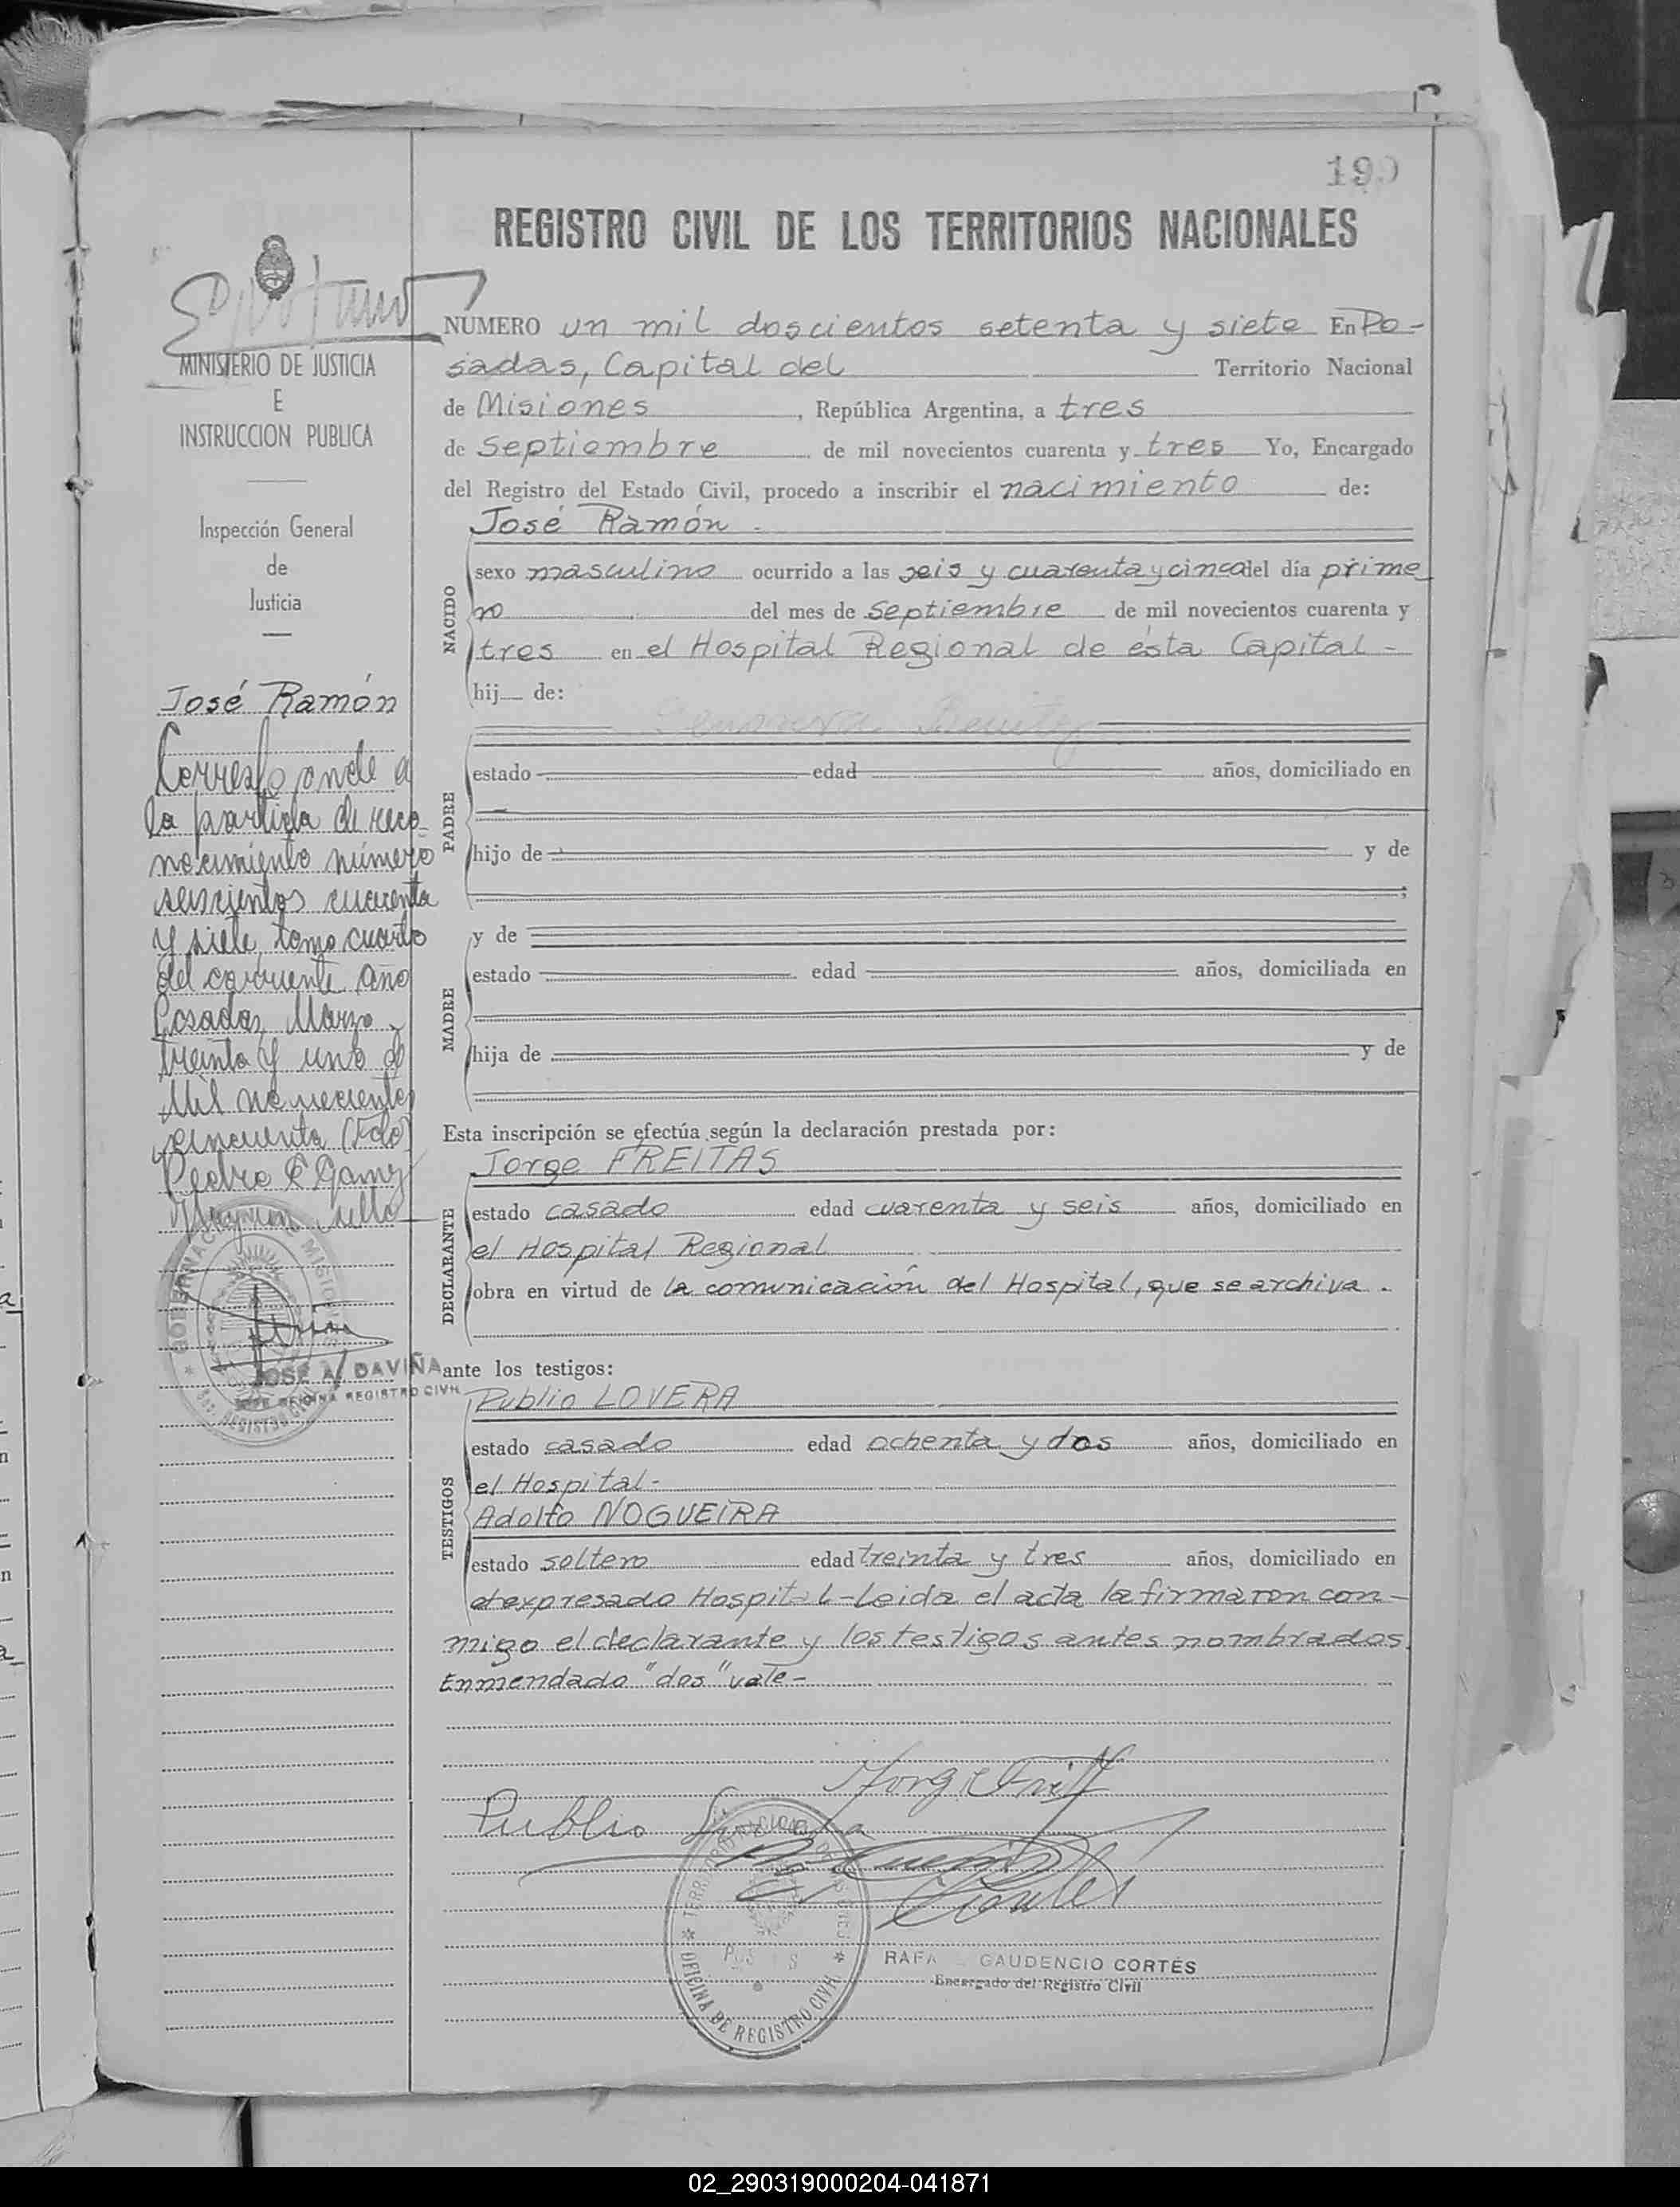 190
REGISTRO CIVIL DE LOS TERRITORIOS NACIONALES
MINISTERIO DE JUSTICIA
E
INSTRUCCION PUBLICA
Inspección General
de
Justicia
José Ramón
Corresponde a
la partida de reco-
nocimiento número
seiscientos cuarenta
y siete, tomo cuarto
del corriente año
Posadas, Marzo
treinta y uno de
Mil novecientos
cincuenta (Fdo)
Pedro
JOSÉ A. DAVIÑA
JEFE OFICINA REGISTRO CIVIL
NÚMERO un mil doscientos setenta y siete En Po-
sadas, Capital del Territorio Nacional
de Misiones, República Argentina, a tres
de Septiembre de mil novecientos cuarenta y tres Yo, Encargado
del Registro del Estado Civil, procedo a inscribir el nacimiento de:
José Ramón.
NACIDO
sexo masculino ocurrido a las seis y cuarenta y cinco del día prime
ro del mes de Septiembre de mil novecientos cuarenta y
tres en el Hospital Regional de ésta Capital-
hij de:
Genoveva Benitez
PADRE
estado edad años, domiciliado en
hijo de y de
;
MADRE
y de
estado edad años, domiciliada en
hija de y de
Esta inscripción se efectúa según la declaración prestada por:
Jorge FREITAS
DECLARANTE
estado casado edad cuarenta y seis años, domiciliado en
el Hospital Regional
obra en virtud de la comunicación del Hospital, que se archiva.
ante los testigos:
Publio LOVERA
TESTIGOS
estado casado edad ochenta y dos años, domiciliado en
el Hospital-
Adolfo NOGUEIRA
estado soltero edad treinta y tres años, domiciliado en
el expresado Hospital-Leida el acta la firmaron con-
migo el declarante y los testigos antes nombrados.
Enmendado "dos" vale-
Publio Lovera
OFICINA DE REGISTRO CIVIL
RAFA GAUDENCIO CORTÉS
Encargado del Registro Civil
02_290319000204-041871